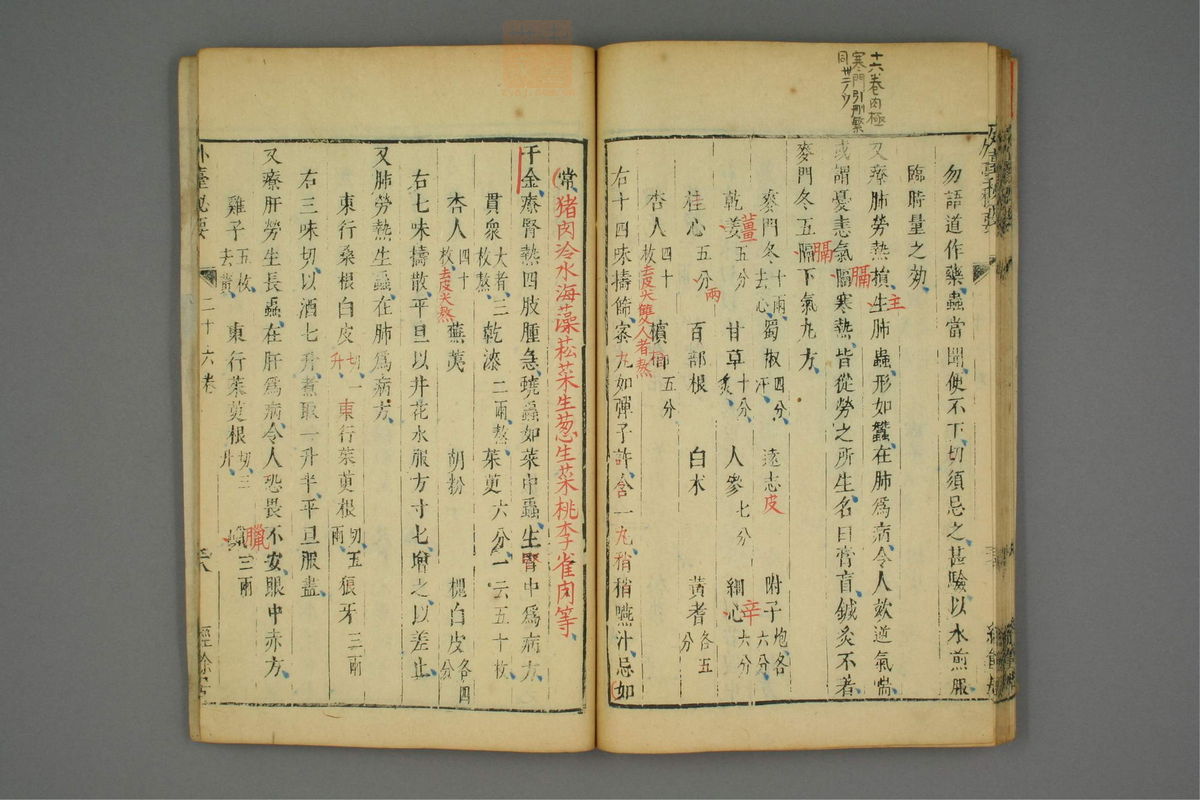 十六卷肉極
寒門引刪繁
同
勿語道作藥蟲當聞便不下切須忌之甚驗以水煎服
臨時量之効
又療肺勞熱損生肺蟲形如蠶在肺為病令人欬逆氣喘
主
或謂憂恚氣隔寒熱皆從勞之所生名曰膏肓鍼灸不著
膈
麥門冬五隔下氣丸方
膈
麥門冬十兩去心 蜀椒四分汗 遠志皮 附子炮各六分
乾姜五分 甘草十分炙 人參七分 細心六分
薑 辛
桂心五分 百部根 白朮 黃耆各五分
兩
杏人四十枚去皮尖雙人者熬 檳榔五分
右十四味擣篩蜜丸如彈子許含一丸稍稍嚥汁忌如
常猪肉冷水海藻菘菜生葱生菜桃李雀肉等
千金療腎熱四肢腫急蟯蟲如菜中蟲生腎中為病方
貫衆大者三枚熬 乾漆二兩熬 茱萸六分一云五十枚
杏人四十枚去皮尖熬 蕪荑 胡粉 槐白皮各四分
右七味擣散平旦以井花水服方寸七增之以差止
又肺勞熱生蟲在肺為病方
東行桑根白皮切一升 東行茱萸根切五兩 狼牙三兩
右三味切以酒七升煮取一升半平旦服盡
又療肝勞生長蟲在肝為病令人恐畏不安眼中赤方
雞子五枚去黃 東行茱萸根切三升 蠟三兩
臘
外臺秘要 二十六卷 經餘居